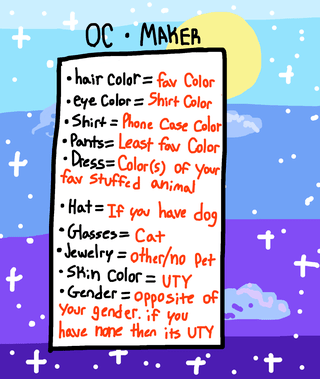 OC · MAKER
• hair Color = fav Color
• eye Color = Shirt Color
• Shirt = Phone Case Color
• Pants = Least fav Color
• Dress = Color(s) of your
fav stuffed animal
• Hat = If you have dog
• Glasses = Cat
• Jewelry = other/no pet
• Skin Color = UTY
• Gender = opposite of
your gender. if you
have none then its UTY